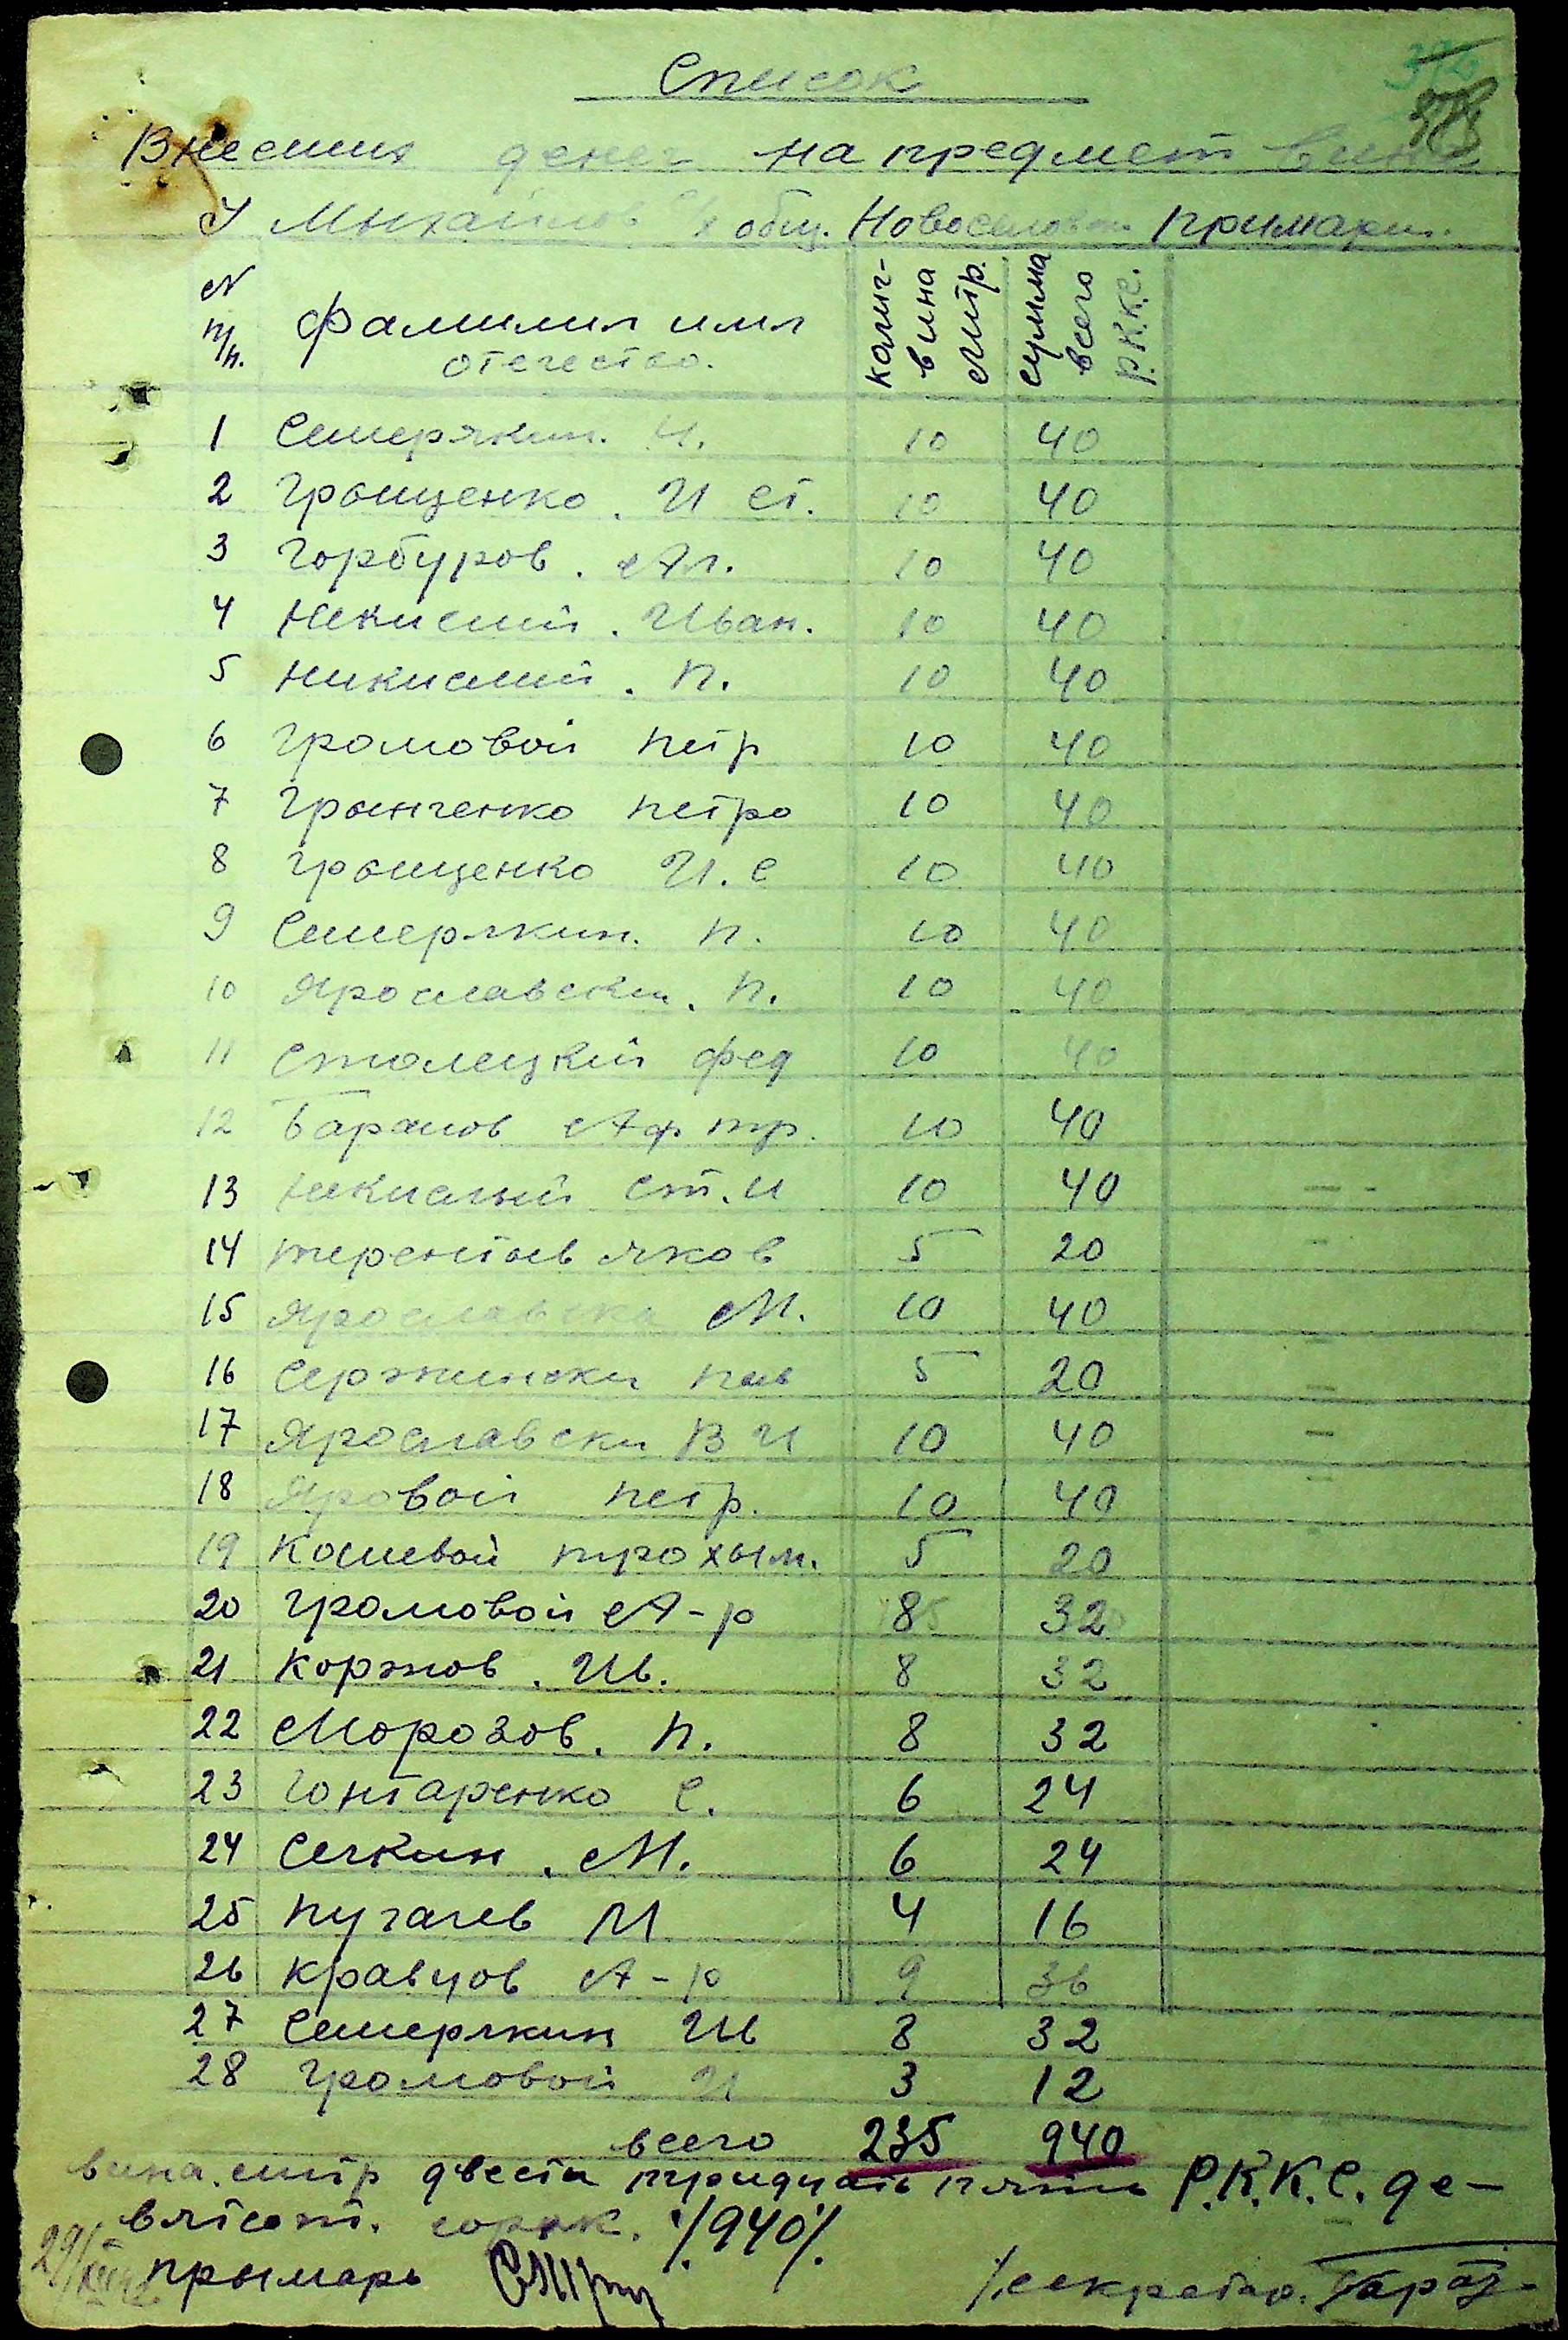 Список
Внесших денег на предмет вина
с/х общ. Новоселовск. примари.
№ п/п. Фамилия имя отечество. колич- вина литр. сумма всего Р.К.К.С.
1 Семерякин. И. 10 40
2 Грыщенко. И Ст. 10 40
3 Горбуров. Ал. 10 40
4 Некислий. Иван. 10 40
5 Никислий. П. 10 40
6 Громовой Петр 10 40
7 Грынченко Петро 10 40
8 Грыщенко И. С 10 40
9 Семерякин. П. 10 40
10 Ярославски. П. 10 40
11 Столецкий Фед 10 40
12 Баранов Аф тр. 10 40
13 Некислий Ст. И 10 40
14 Терентьев Яков 5 20
15 Ярославски М. 10 40
16 Сержински Пав 5 20
17 Ярославски В И 10 40
18 Яровой Петр. 10 40
19 Кошевой Прохым. 5 20
20 Громовой А-р 8 32
21 Коржов. Ив. 8 32
22 Морозов. П. 8 32
23 Гонтаренко С. 6 24
24 Сечкин. М. 6 24
25 Пугачев М 4 16
26 Кравцов А-р 9 36
27 Семерякин Ив 8 32
28 Громовой И 3 12
всего 235 940
вина литр двести тридцать пять Р.К.К.С. де-
вятсот. сорок. /940/.
Прымарь /секретар.